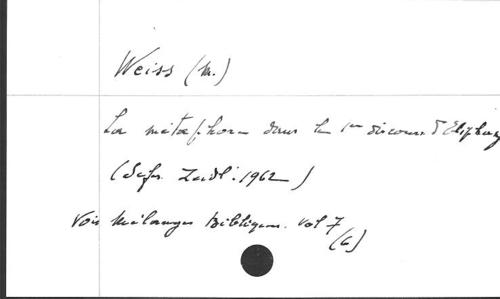 Weiss (M.)
La métaphore dans le 1er discours d'Eliphaz
(Sefer Zeidl: 1962)
Voir Mélanges Bibliques. vol 7
(6)